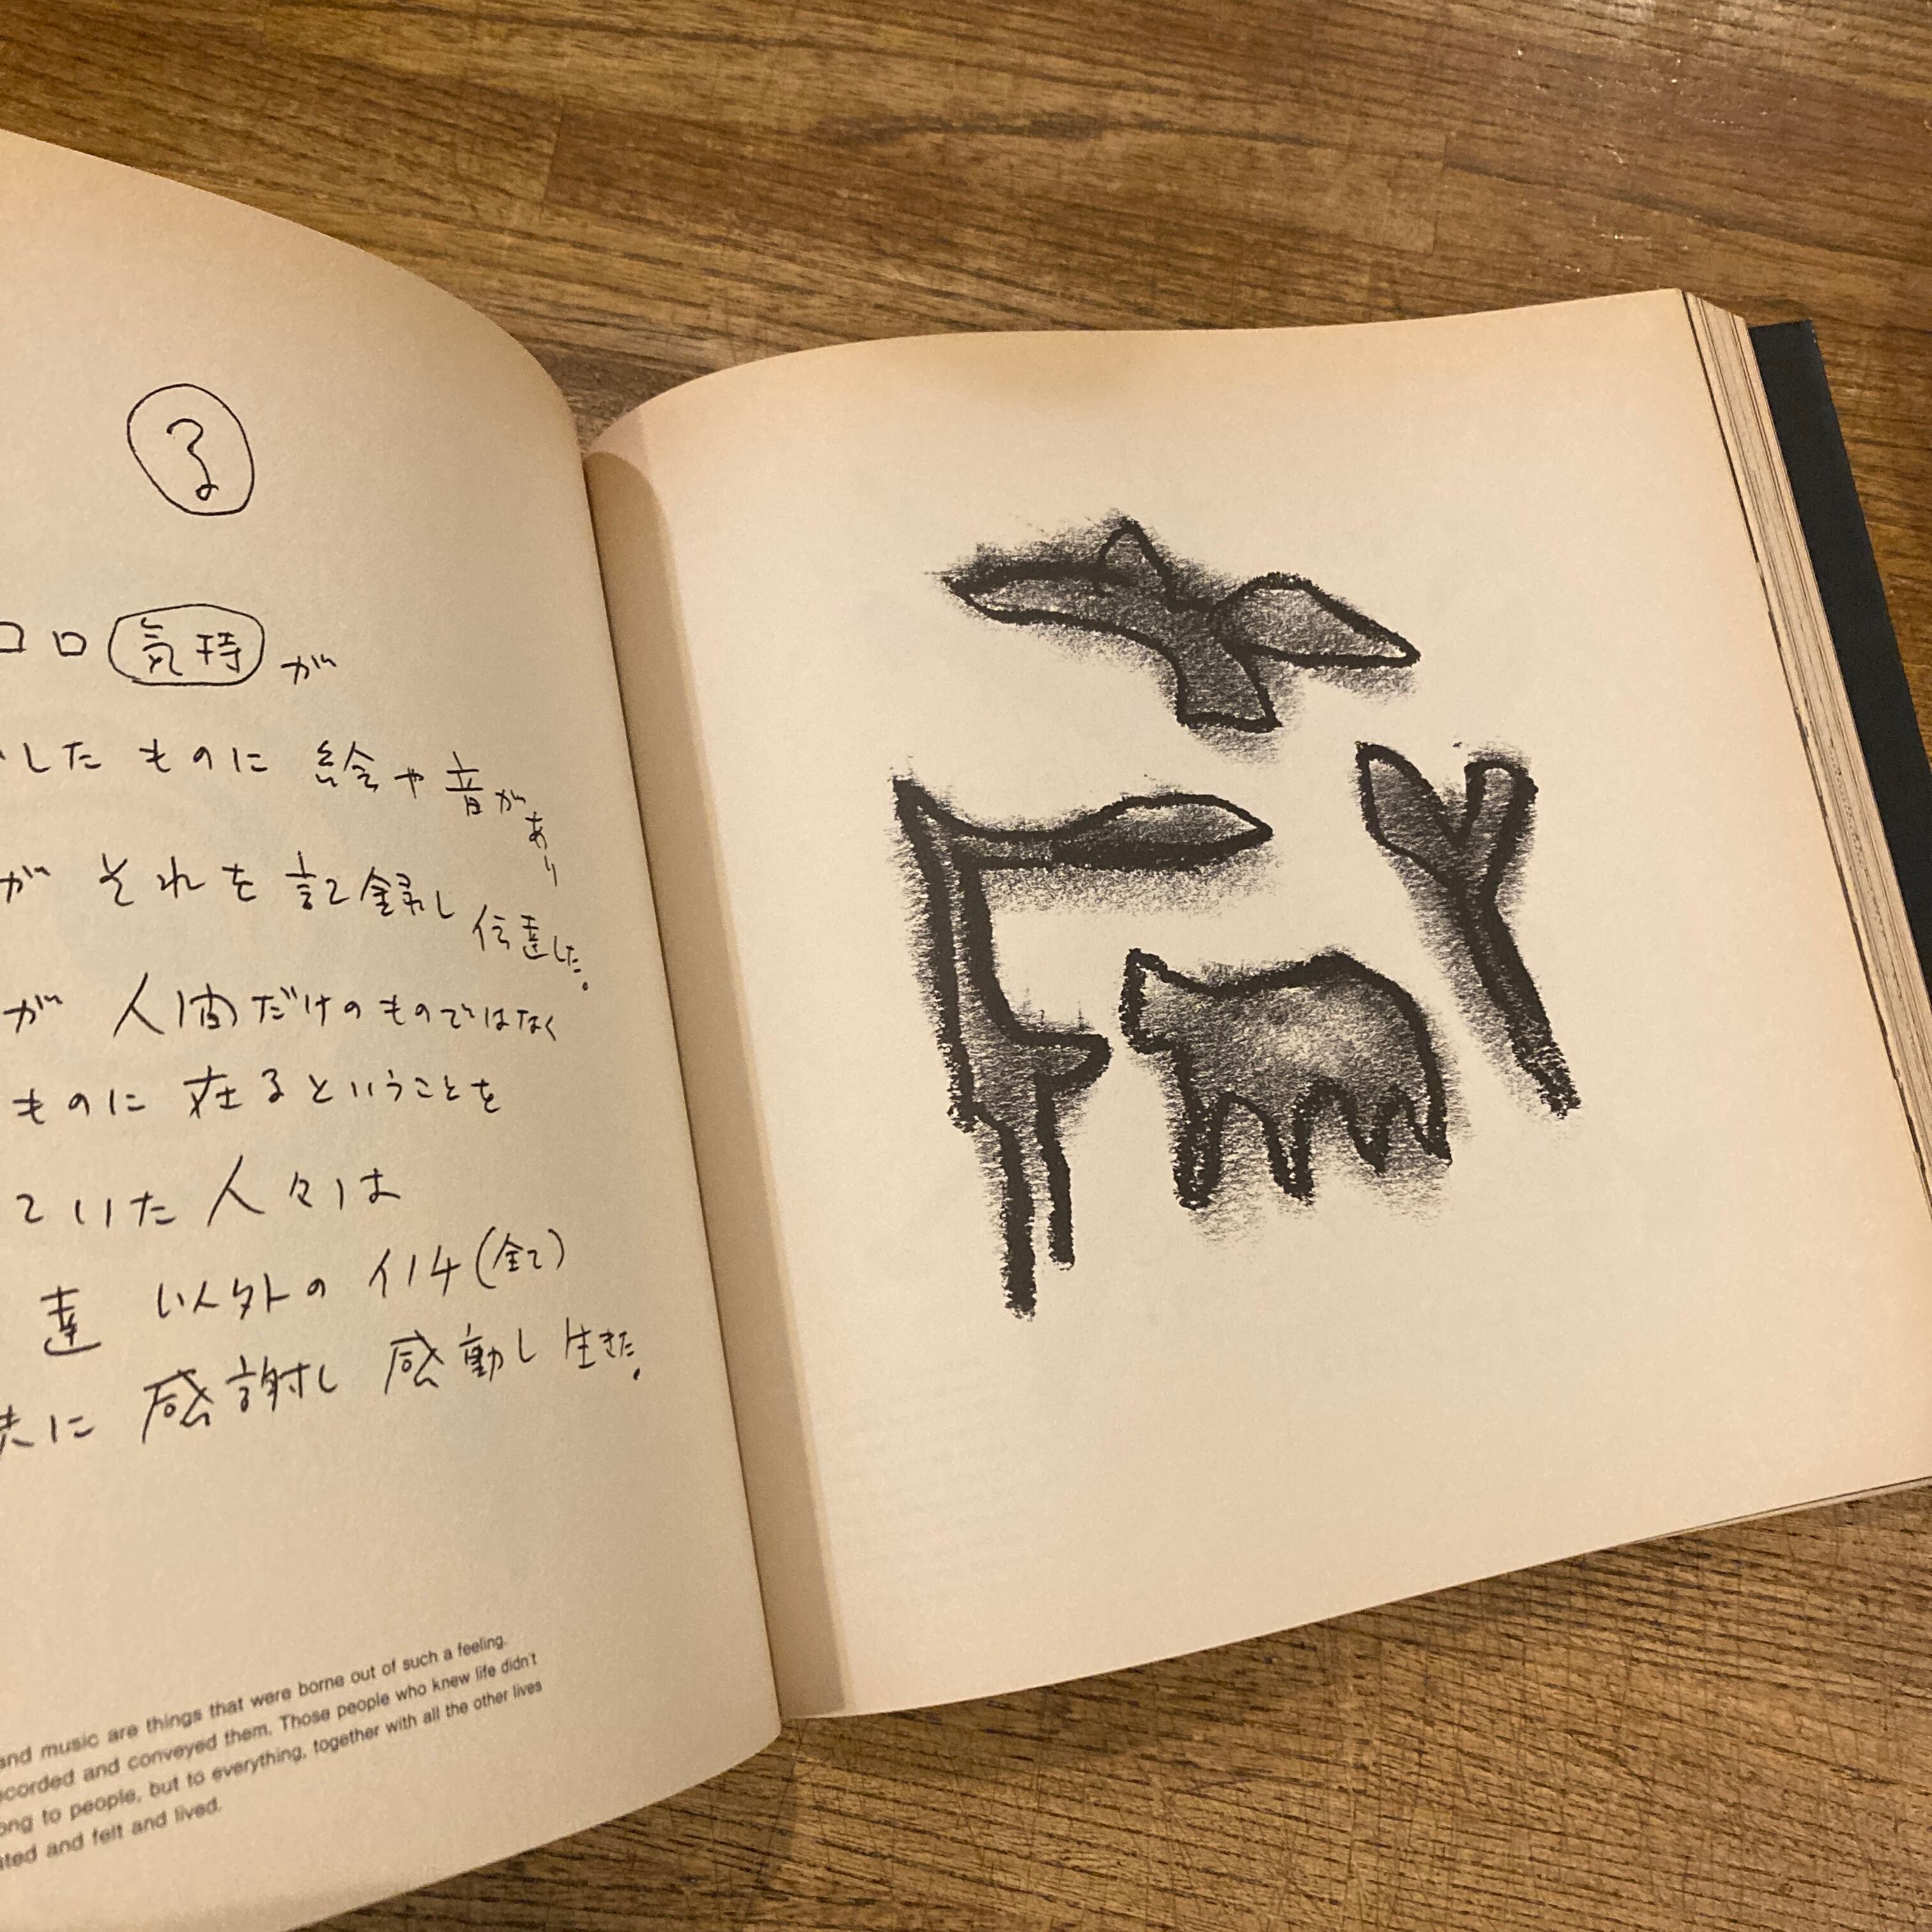 る
コロ 気持 が
したものに 絵や音があり
が それを 記録し 伝達した。
が 人間だけのものではなく
ものに 在るということを
ていた 人々は
達 以外の イノチ(全て)
共に 感謝し 感動し 生きた。
and music are things that were borne out of such a feeling.
recorded and conveyed them. Those people who knew life didn't
ong to people, but to everything, together with all the other lives
ated and felt and lived.